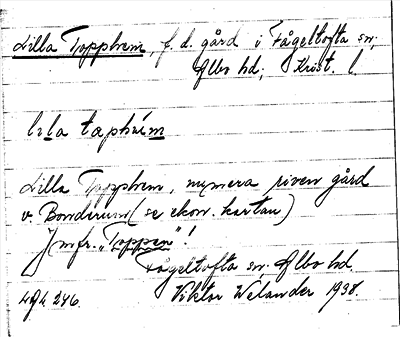 Lilla Topphem, f. d. gård i Fågeltofta sn;
Albo hd; Krist. l.
lıla taphem
Lilla Topphem, numera riven gård
v. Bonderum (se ekon. kartan)
Jmfr. „Toppen"!
Fågeltofta sn; Albo hd.
Viktor Welander 1938.